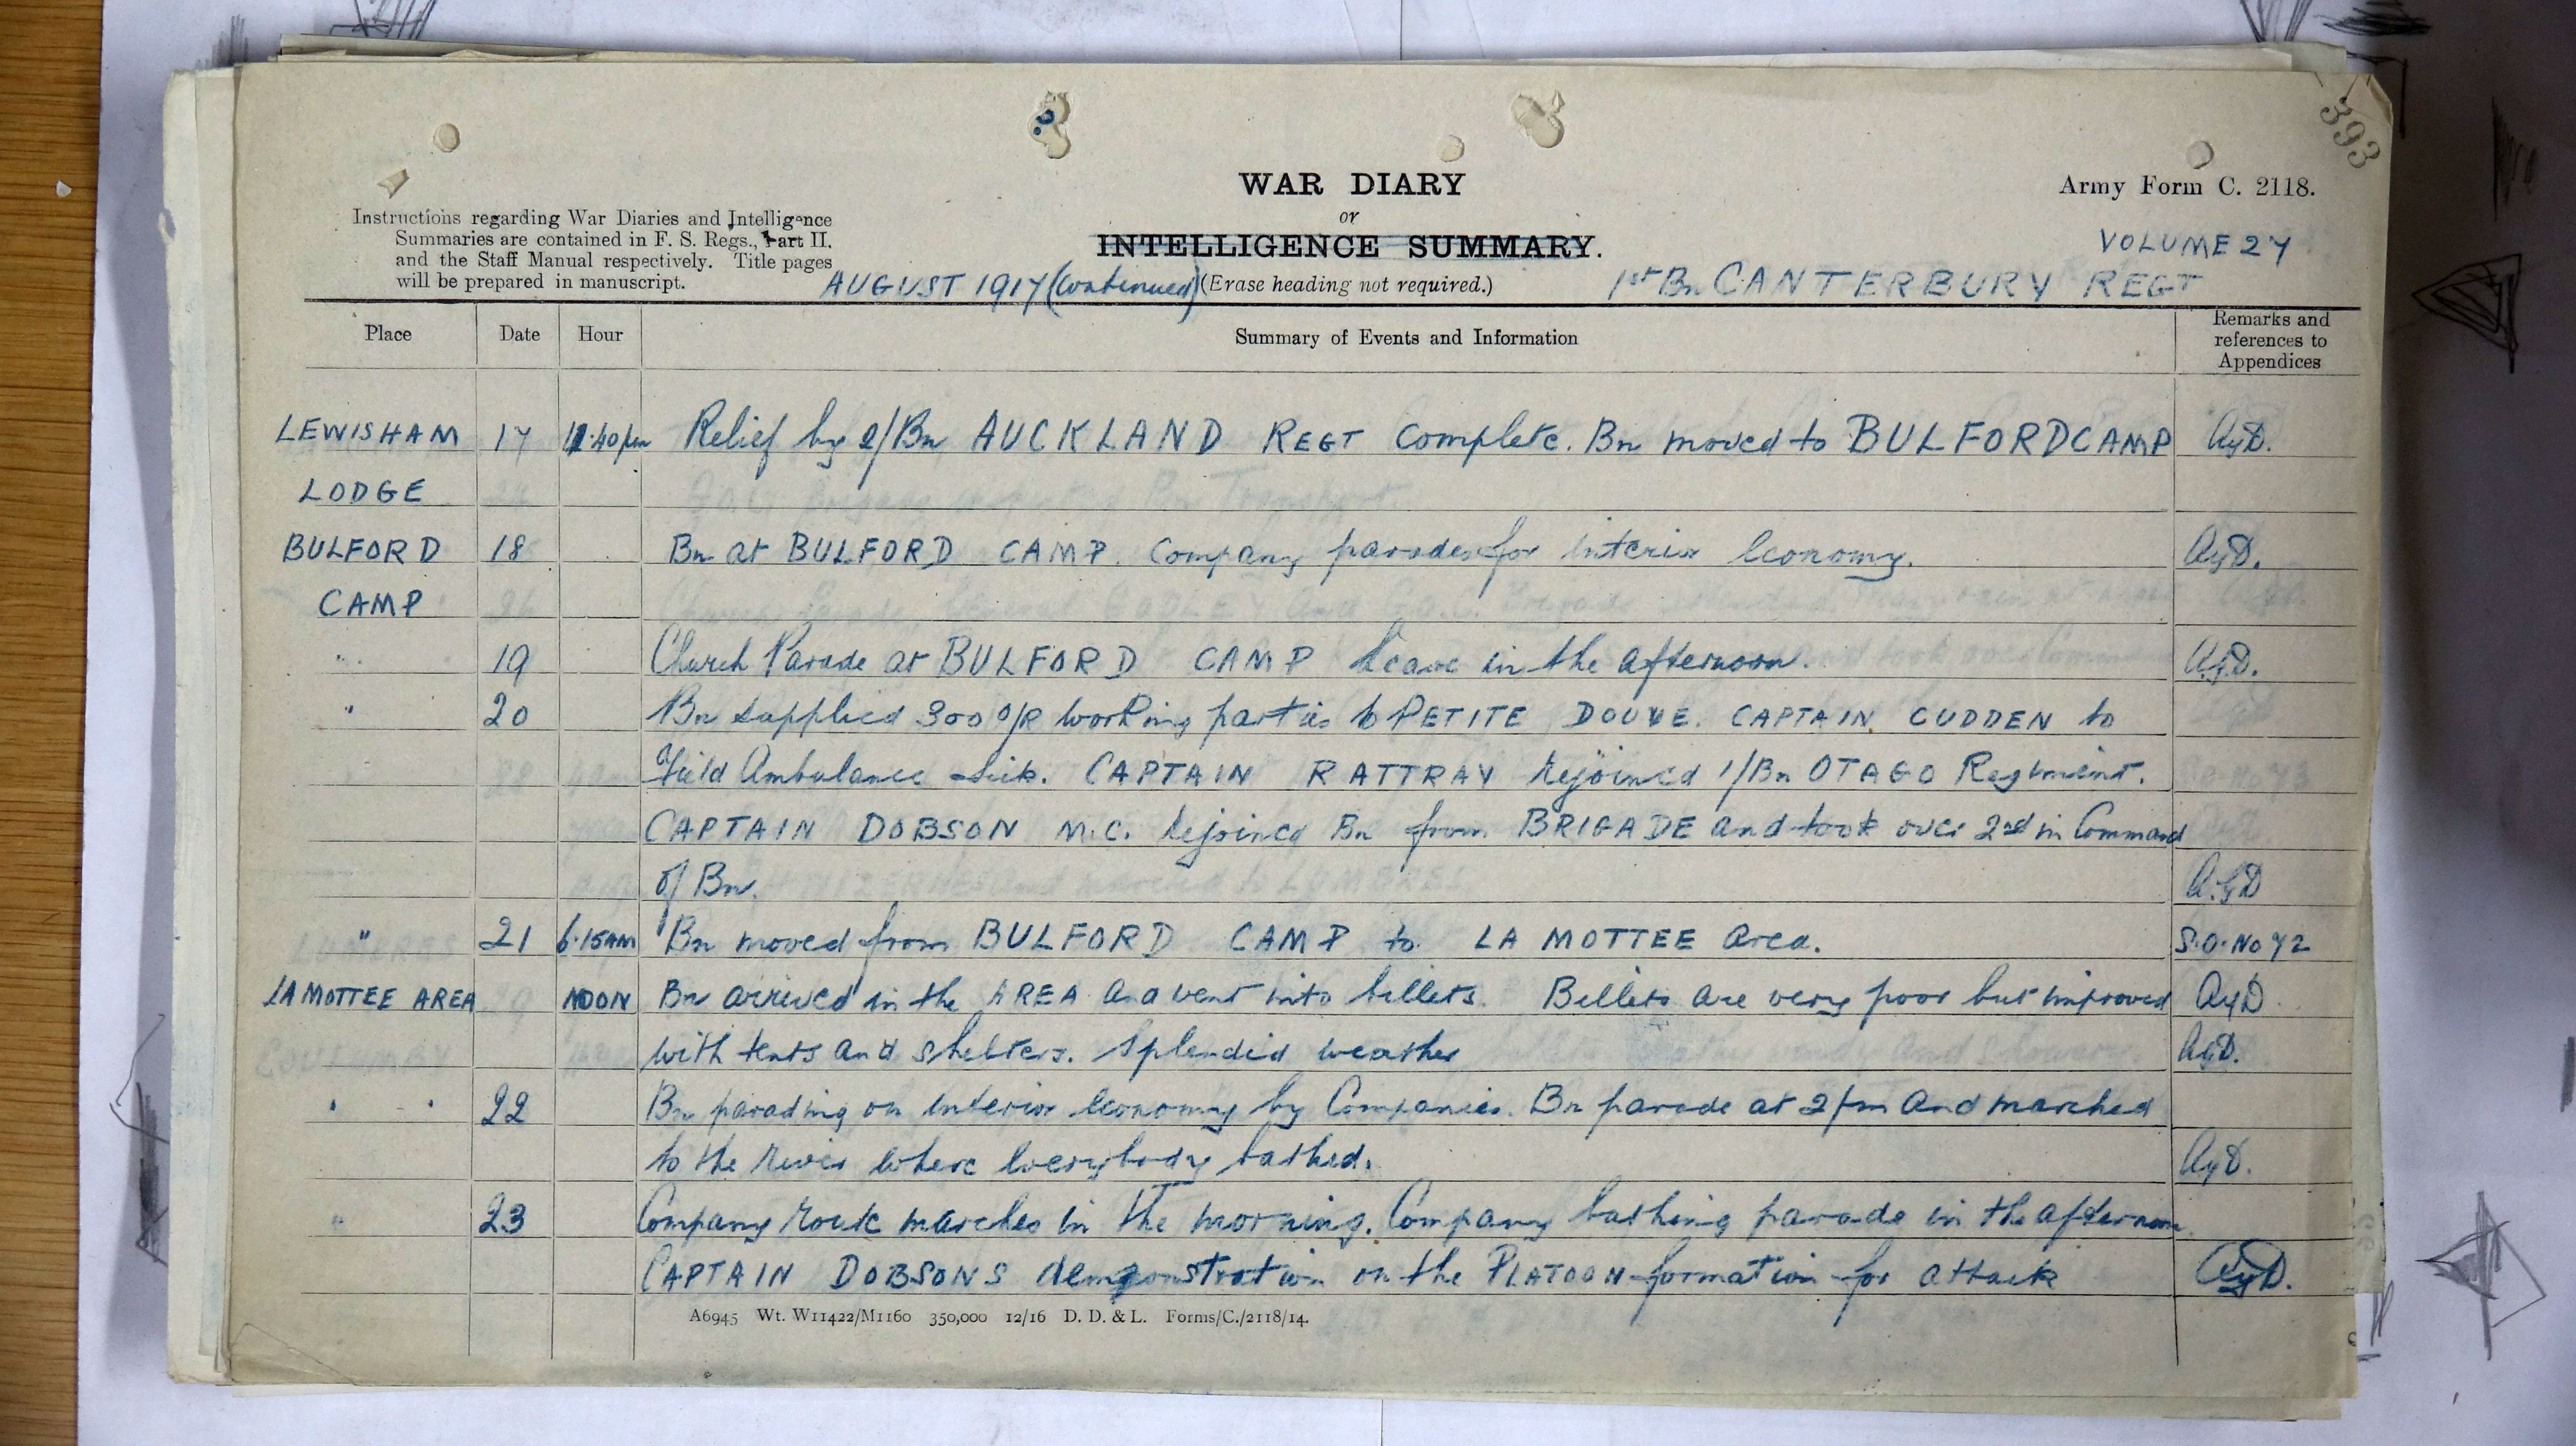 393
WAR DIARY
or
INTELLIGENCE SUMMARY.
(Erase heading not required.)
Army Form C. 2118.
Instructions regarding War Diaries and Intelligence
Summaries are contained in F. S. Regs., Part II.
and the Staff Manual respectively. Title pages
will be prepared in manuscript.
VOLUME 27
AUGUST 1917 (Continued)
1st Bn CANTERBURY REGT
Place Date Hour Summary of Events and Information Remarks and references to Appendices
LEWISHAM 17 11.40pm Relief by 2/Bn AUCKLAND REGT complete. Bn moved to BULFORD CAMP AGD.
LODGE
BULFORD 18 Bn at BULFORD CAMP. Company parades for interior economy. AGD.
CAMP
" 19 Church Parade at BULFORD CAMP leave in the afternoon. AGD.
" 20 Bn supplied 300 O/R working parties to PETITE DOUVE. CAPTAIN CUDDEN to
Field Ambulance sick. CAPTAIN RATTRAY rejoined 1/Bn OTAGO Regiment.
CAPTAIN DOBSON M.C. rejoined Bn from BRIGADE and took over 2nd in Command
of Bn. A.G.D
" 21 6.15AM Bn moved from BULFORD CAMP to LA MOTTEE area. S.O. No 72
LA MOTTEE AREA NOON Bn arrived in the AREA and went into billets. Billets are very poor but improved AGD.
with tents and shelters. Splendid weather AGD.
" " 22 Bn parading on interior economy by Companies. Bn parade at 2pm and marched
to the river where everybody bathed. AGD.
" 23 Company route marches in the morning. Company bathing parade in the afternoon
CAPTAIN DOBSONS demonstration on the PLATOON formation for attack AGD.
A6945 Wt. W11422/M1160 350,000 12/16 D. D. & L. Forms/C./2118/14.